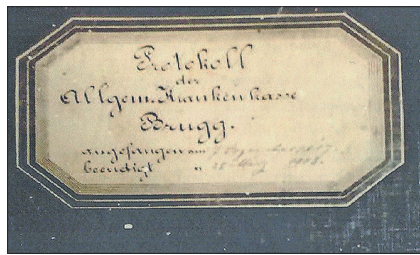 Protokoll
der
Allgem. Krankenkasse
Brugg.
angefangen am
beendigt " 1908.